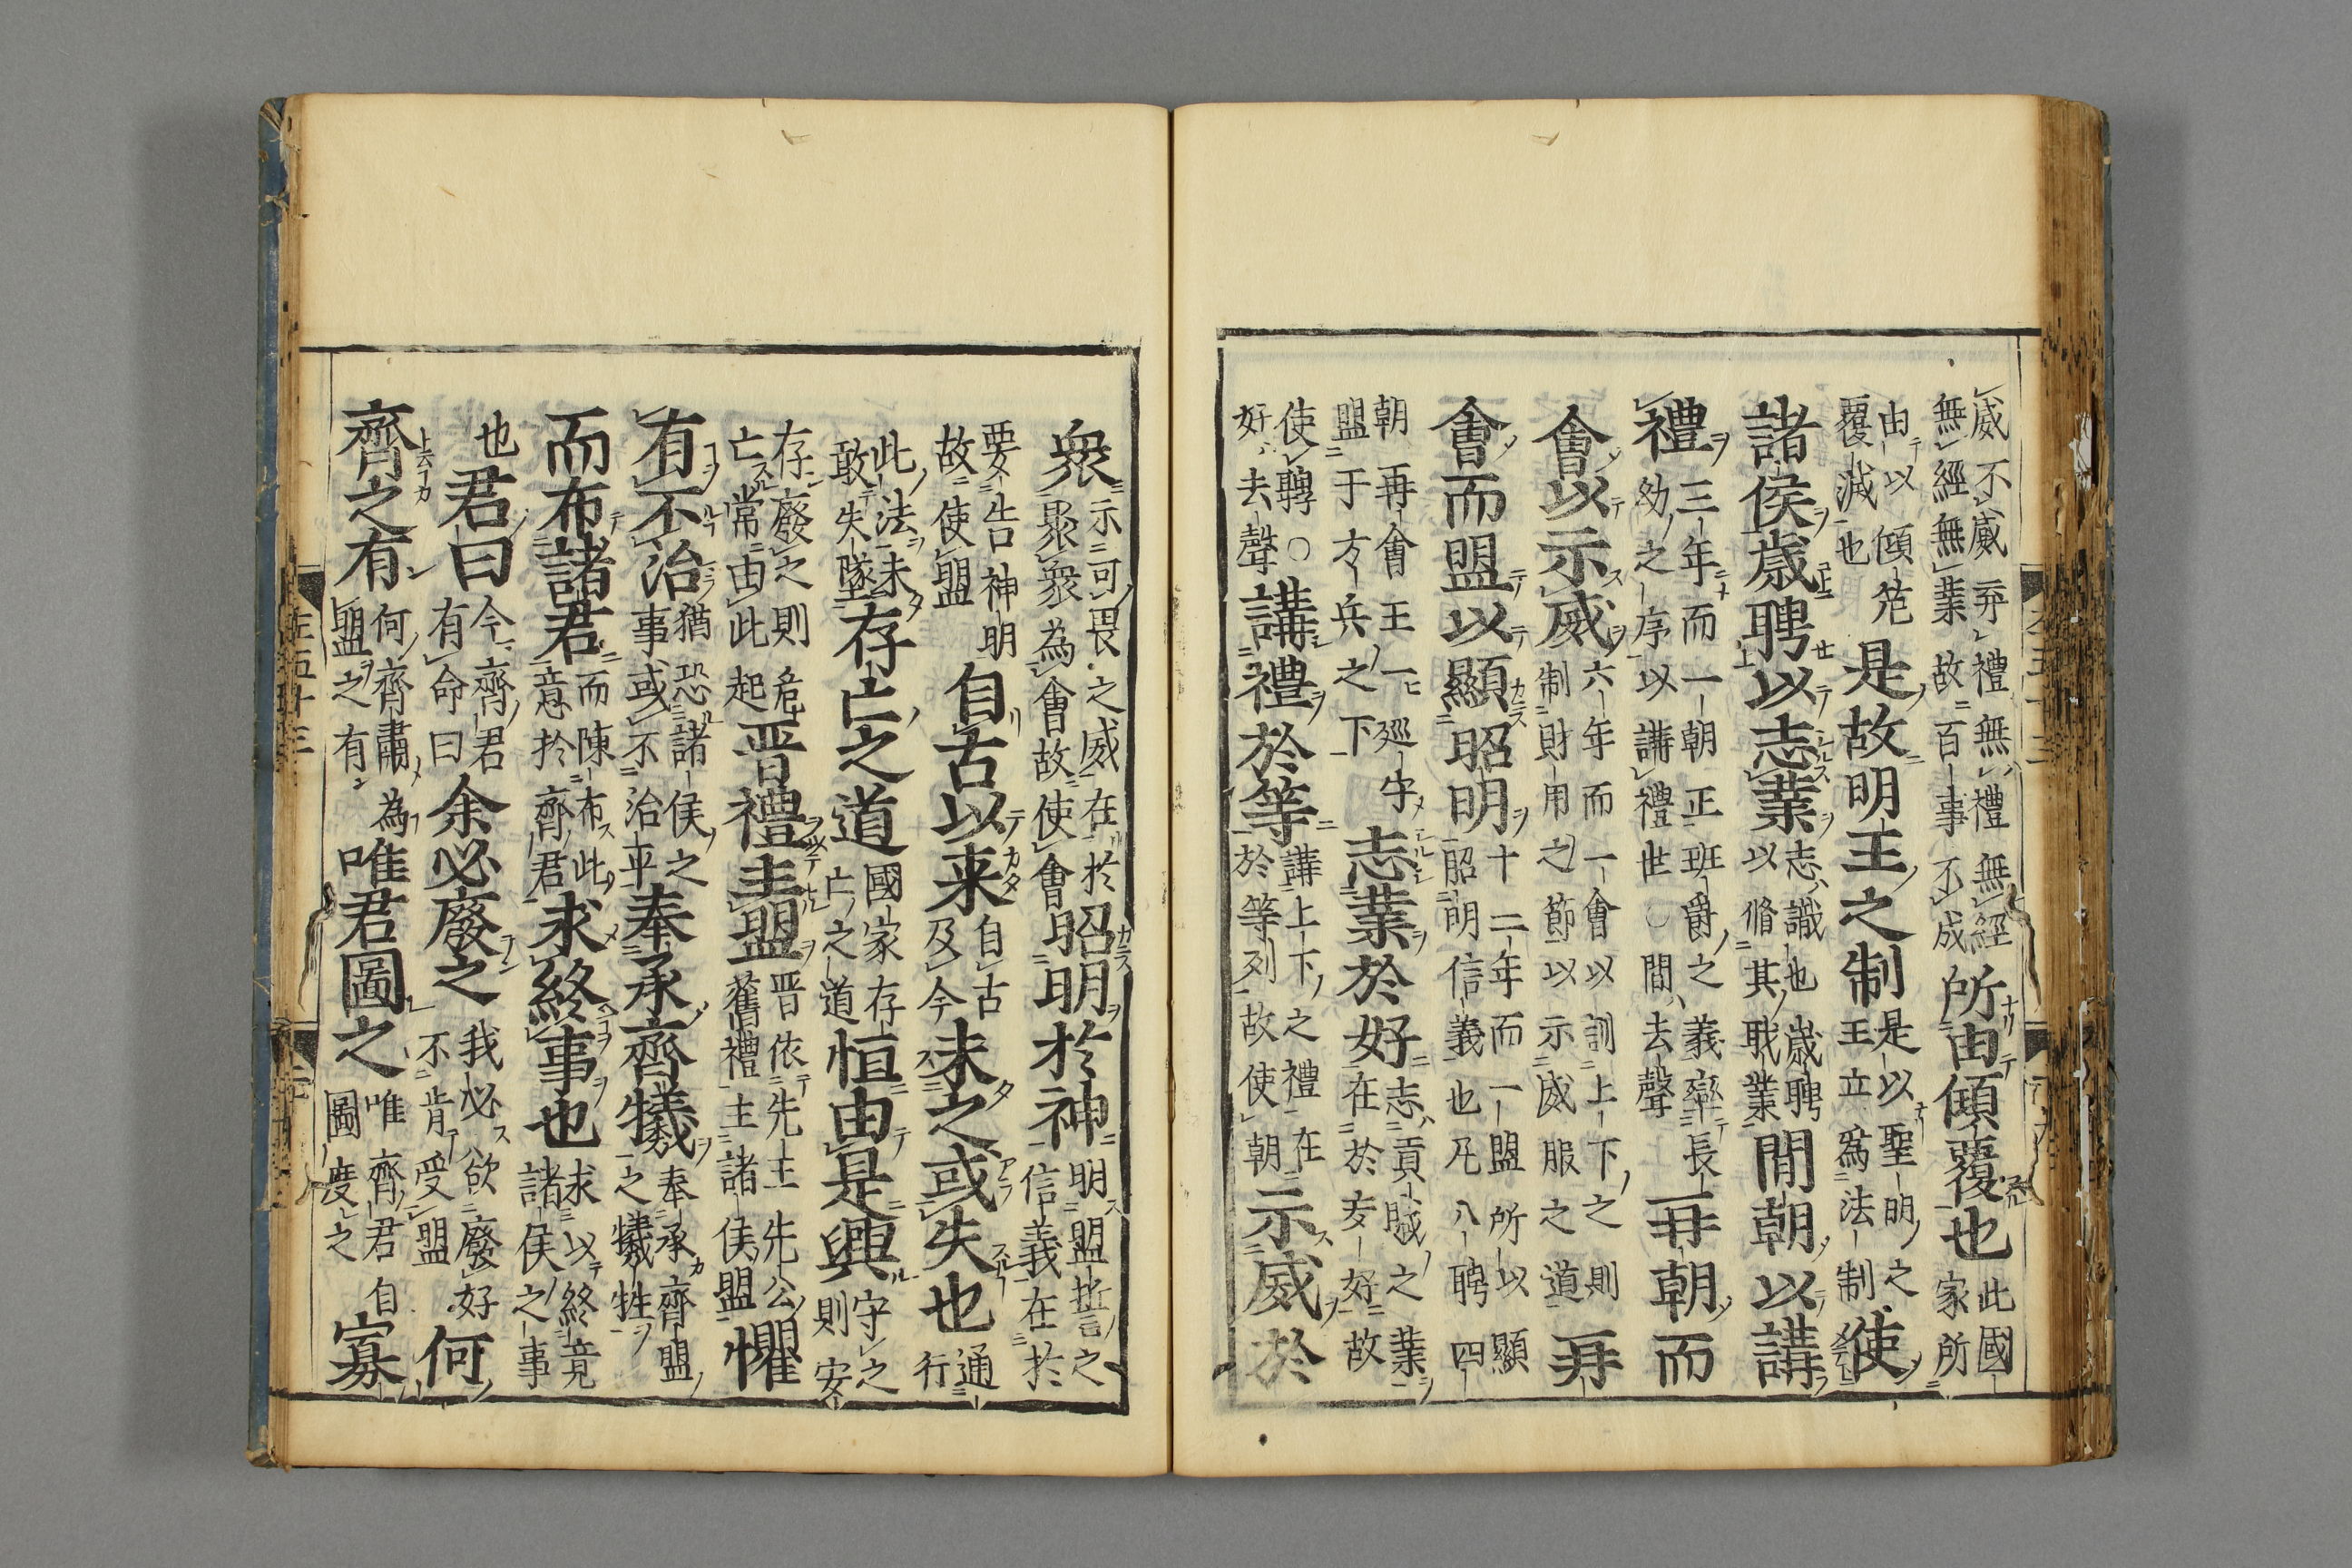 威不威棄禮無禮無經
無經無業故百事不成所由傾覆也此國
家所
由以傾危
覆滅也是故明王之制是以聖明之
王立為法制使
諸侯歳聘以志業志識也歳聘
以脩其職業間朝以講
禮三年而一朝正班爵之義率長
幼之序以講禮世○間去聲再朝而
會以示威六年而一會以訓上下之則
制財用之節以示威服之道再
會而盟以顯昭明十二年而一盟所以顯
昭明信義也凡八聘四
朝再會王一巡守
盟于方兵之下志業於好志貢賦之業
在於友好故
使聘○
好去聲講禮於等講上下之禮在
於等列故使朝示威於
衆示可畏之威在於
衆為會故使會昭明於神明盟誓之
信義在於
要告神明
故使盟自古以来自古
及今未之或失也通
行
此法未
敢失墜存亡之道國家存
亡之道恒由是興守之
則安
存廢之則危
亡常由此起晋禮主盟晋依先王先公
舊禮主諸侯盟懼
有不治猶恐諸侯之
事或不治平奉承齊犧奉承齊盟
之犧牲
而布諸君而陳布此
意於齊君求終事也求以終竟
諸侯之事
也君曰今齊君
有命曰余必廢之我必欲廢好
不肯受盟何
齊之有何齊肅為
盟之有唯君圖之唯齊君自
圖度之寡